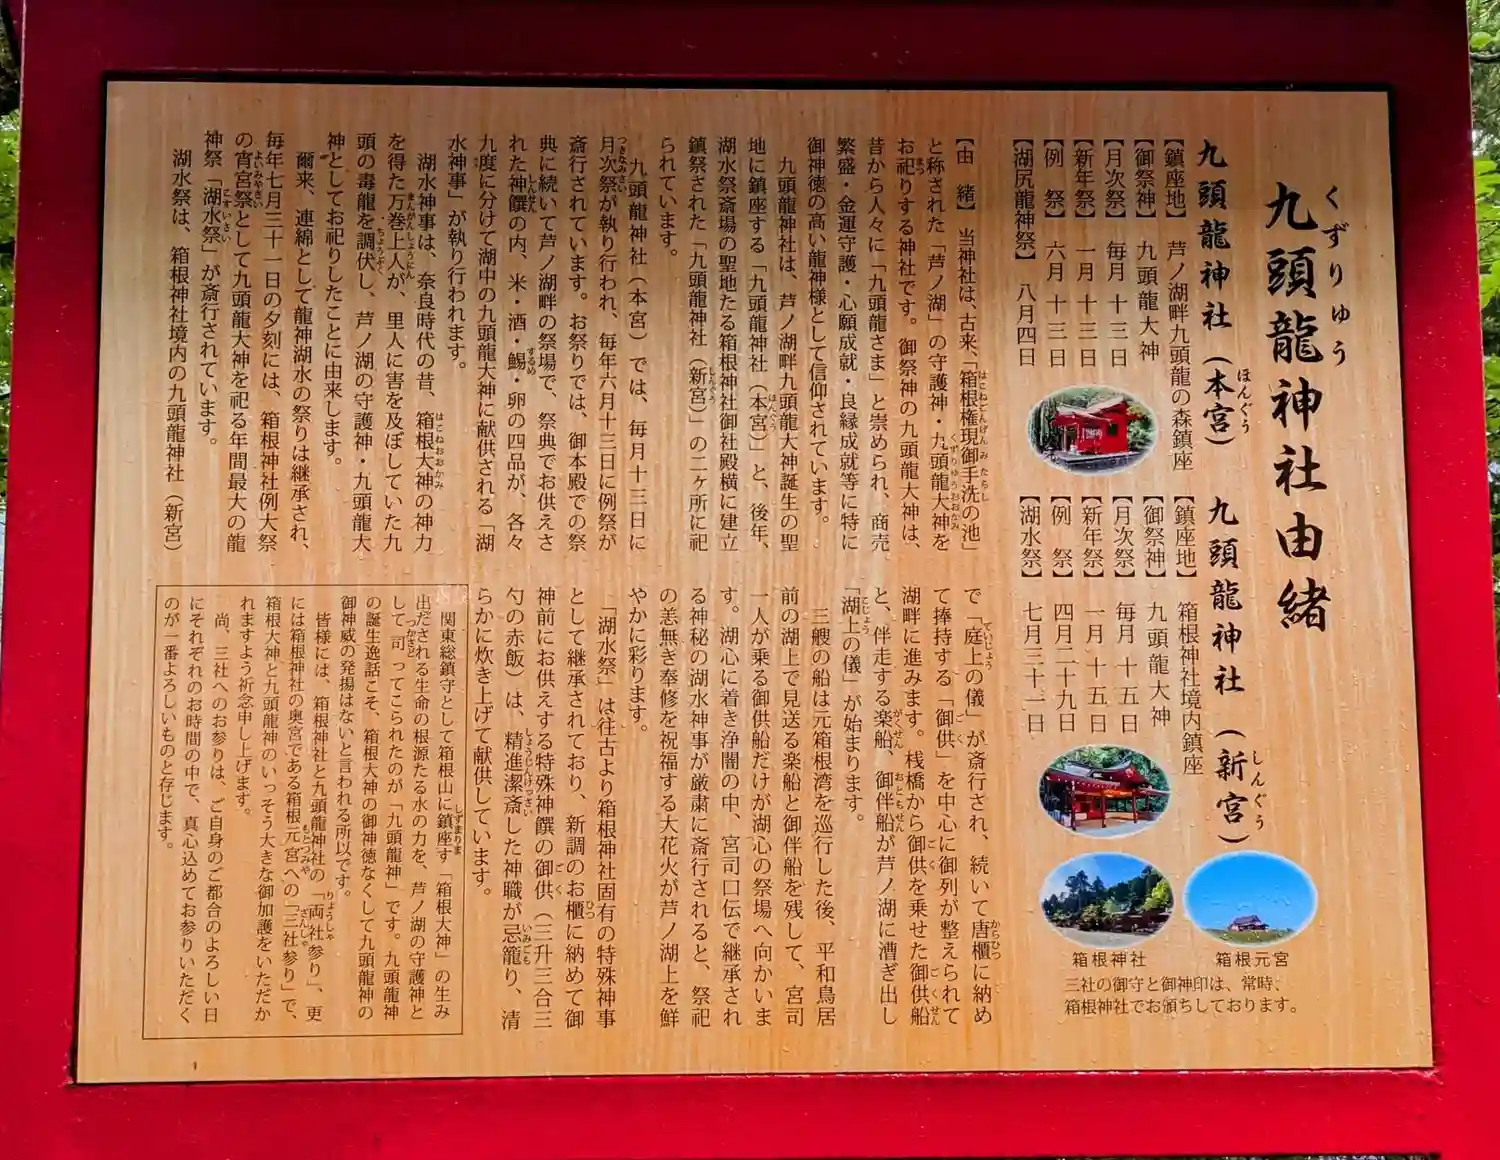 九頭龍神社由緒
くずりゅう
九頭龍神社（本宮）
ほんぐう
【鎮座地】 芦ノ湖畔九頭龍の森鎮座
【御祭神】 九頭龍大神
【月次祭】 毎月 十三日
【新年祭】 一月 十三日
【例　祭】 六月 十三日
【湖尻龍神祭】 八月四日
九頭龍神社（新宮）
しんぐう
【鎮座地】 箱根神社境内鎮座
【御祭神】 九頭龍大神
【月次祭】 毎月 十五日
【新年祭】 一月 十五日
【例　祭】 四月二十九日
【湖水祭】 七月三十一日
箱根神社
箱根元宮
三社の御守と御神印は、常時、
箱根神社でお頒ちしております。
【由　緒】 当神社は、古来、「箱根権現御手洗の池」
はこねごんげん みたらし
と称された「芦ノ湖」の守護神・九頭龍大神を
くずりゅうおおかみ
お祀りする神社です。御祭神の九頭龍大神は、
まつ
昔から人々に「九頭龍さま」と崇められ、商売
繁盛・金運守護・心願成就・良縁成就等に特に
御神徳の高い龍神様として信仰されています。
九頭龍神社は、芦ノ湖畔九頭龍大神誕生の聖
地に鎮座する「九頭龍神社（本宮）」と、後年、
ほんぐう
湖水祭斎場の聖地たる箱根神社御社殿横に建立
鎮祭された「九頭龍神社（新宮）」の二ヶ所に祀
しんぐう
られています。
九頭龍神社（本宮）では、毎月十三日に
月次祭が執り行われ、毎年六月十三日に例祭が
つきなみさい
斎行されています。お祭りでは、御本殿での祭
典に続いて芦ノ湖畔の祭場で、祭典でお供えさ
れた神饌の内、米・酒・鯣・卵の四品が、各々
しんせん するめ
九度に分けて湖中の九頭龍大神に献供される「湖
水神事」が執り行われます。
湖水神事は、奈良時代の昔、箱根大神の神力
はこねおおかみ
を得た万巻上人が、里人に害を及ぼしていた九
まんがんしょうにん
頭の毒龍を調伏し、芦ノ湖の守護神・九頭龍大
ちょうぶく
神としてお祀りしたことに由来します。
爾来、連綿として龍神湖水の祭りは継承され、
毎年七月三十一日の夕刻には、箱根神社例大祭
の宵宮祭として九頭龍大神を祀る年間最大の龍
よいみやさい
神祭「湖水祭」が斎行されています。
こすいさい
湖水祭は、箱根神社境内の九頭龍神社（新宮）
で「庭上の儀」が斎行され、続いて唐櫃に納め
ていじょう からひつ
て捧持する「御供」を中心に御列が整えられて
ごく
湖畔に進みます。桟橋から御供を乗せた御供船
ごく ごくせん
と、伴走する楽船、御伴船が芦ノ湖に漕ぎ出し
がくせん おともせん
「湖上の儀」が始まります。
こじょう
三艘の船は元箱根湾を巡行した後、平和鳥居
前の湖上で見送る楽船と御伴船を残して、宮司
一人が乗る御供船だけが湖心の祭場へ向かいま
す。湖心に着き浄闇の中、宮司口伝で継承され
る神秘の湖水神事が厳粛に斎行されると、祭祀
の恙無き奉修を祝福する大花火が芦ノ湖上を鮮
やかに彩ります。
「湖水祭」は往古より箱根神社固有の特殊神事
として継承されており、新調のお櫃に納めて御
ひつ
神前にお供えする特殊神饌の御供（三升三合三
ごく
勺の赤飯）は、精進潔斎した神職が忌籠り、清
しょうじんけっさい いみごも
らかに炊き上げて献供しています。
関東総鎮守として箱根山に鎮座す「箱根大神」の生み
しずまりま
出だされる生命の根源たる水の力を、芦ノ湖の守護神と
して司ってこられたのが「九頭龍神」です。九頭龍神
つかさど
の誕生逸話こそ、箱根大神の御神徳なくして九頭龍神の
御神威の発揚はないと言われる所以です。
皆様には、箱根神社と九頭龍神社の「両社参り」、更
りょうしゃ
には箱根神社の奥宮である箱根元宮への「三社参り」で、
もとつみや さんしゃ
箱根大神と九頭龍神のいっそう大きな御加護をいただか
れますよう祈念申し上げます。
尚、三社へのお参りは、ご自身のご都合のよろしい日
にそれぞれのお時間の中で、真心込めてお参りいただく
のが一番よろしいものと存じます。